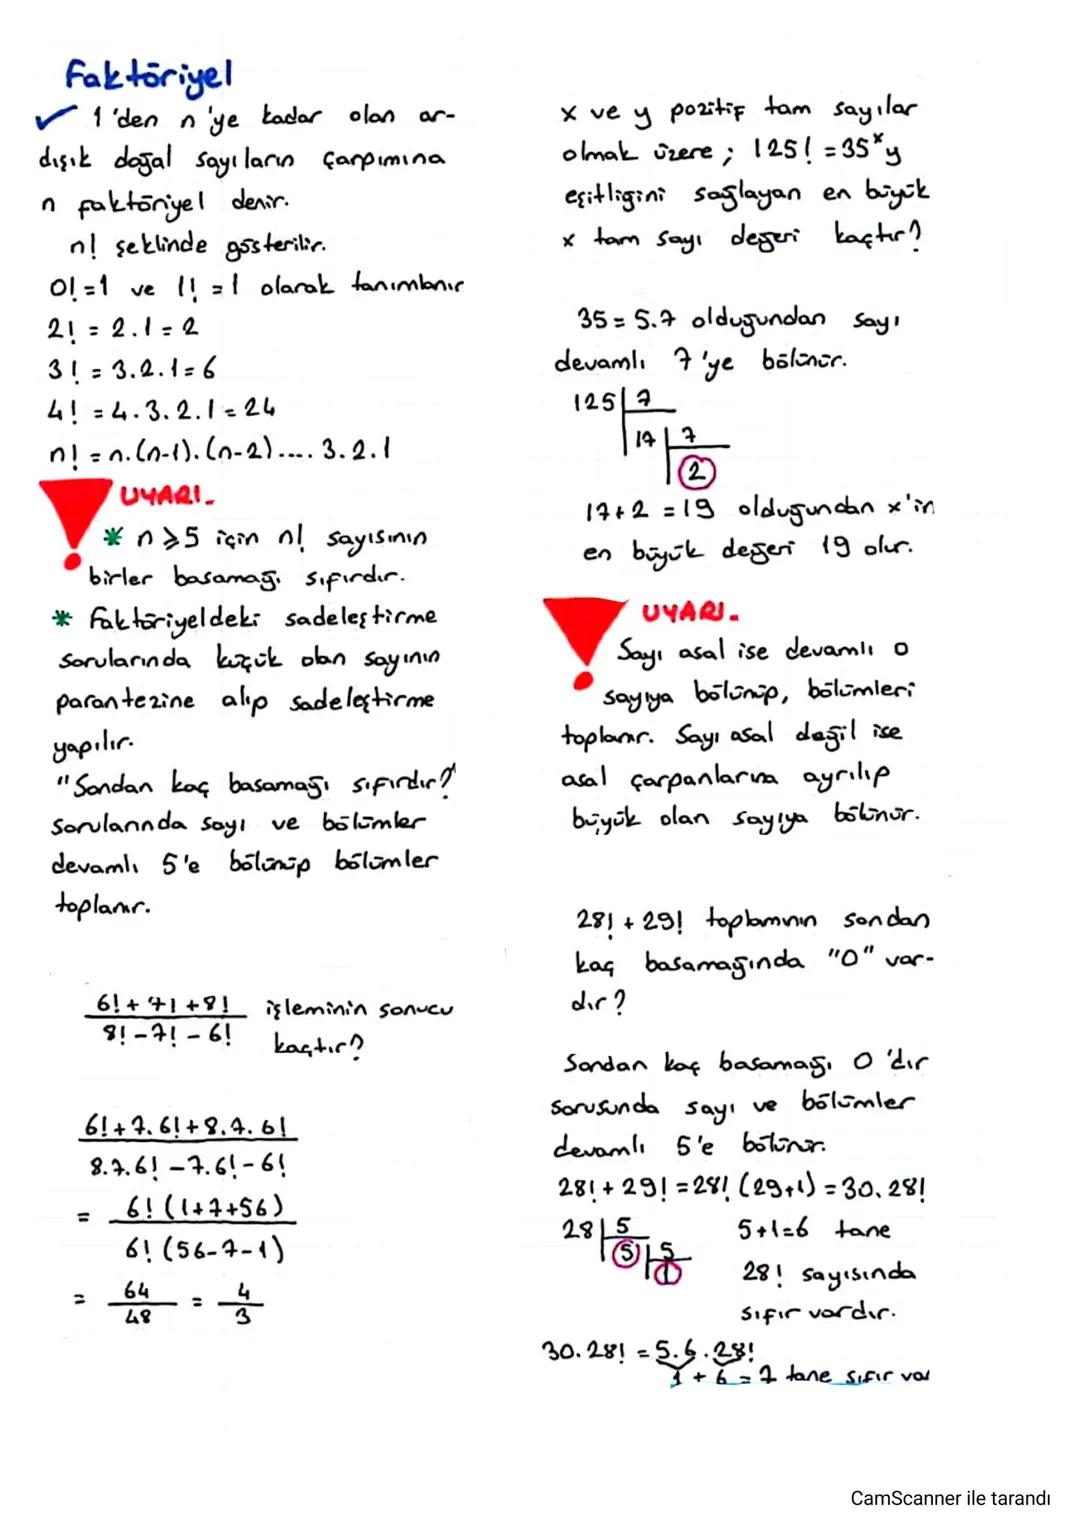 Faktöriyel
✓ 1'den n'ye kadar olan ar-
dışık doğal sayıların çarpımına
n faktöriyel denir.
n! şeklinde gösterilir.
0! = 1 ve 1! = 1 olarak tanımlanır
2! = 2.1 = 2
3! = 3.2.1 = 6
4! = 4.3.2.1 = 24
n! = n.(n-1).(n-2).... 3.2.1
UYARI_
* n ≥ 5 için n! sayısının
birler basamağı sıfırdır.
* Faktöriyeldeki sadeleştirme
sorularında küçük olan sayının
parantezine alıp sadeleştirme
yapılır.
"Sondan kaç basamağı sıfırdır?"
Sorularında sayı ve bölümler
devamlı 5'e bölünüp bölümler
toplanır.
6! + 7! + 8! işleminin sonucu
8! - 7! - 6! kaçtır?
6! + 7.6! + 8.7.6!
8.7.6! - 7.6! - 6!
= 6! (1+7+56)
6! (56-7-1)
= 64 = 4
48 3
x ve y pozitif tam sayılar
olmak üzere ; 125! = 35ˣy
eşitliğini sağlayan en büyük
x tam sayı değeri kaçtır?
35 = 5.7 olduğundan sayı
devamlı 7'ye bölünür.
125 7
17 7
2
17+2 = 19 olduğundan x'in
en büyük değeri 19 olur.
UYARI_
Sayı asal ise devamlı o
sayıya bölünüp, bölümleri
toplanır. Sayı asal değil ise
asal çarpanlarına ayrılıp
büyük olan sayıya bölünür.
28! + 29! toplamının sondan
kaç basamağında "0" var-
dır?
Sondan kaç basamağı 0'dır
sorusunda sayı ve bölümler
devamlı 5'e bölünür.
28! + 29! = 28! (29+1) = 30.28!
28 5 5+1=6 tane
5 5
1 28! sayısında
sıfır vardır.
30.28! = 5.6.28!
1 + 6 = 7 tane sıfır var
CamScanner ile tarandı